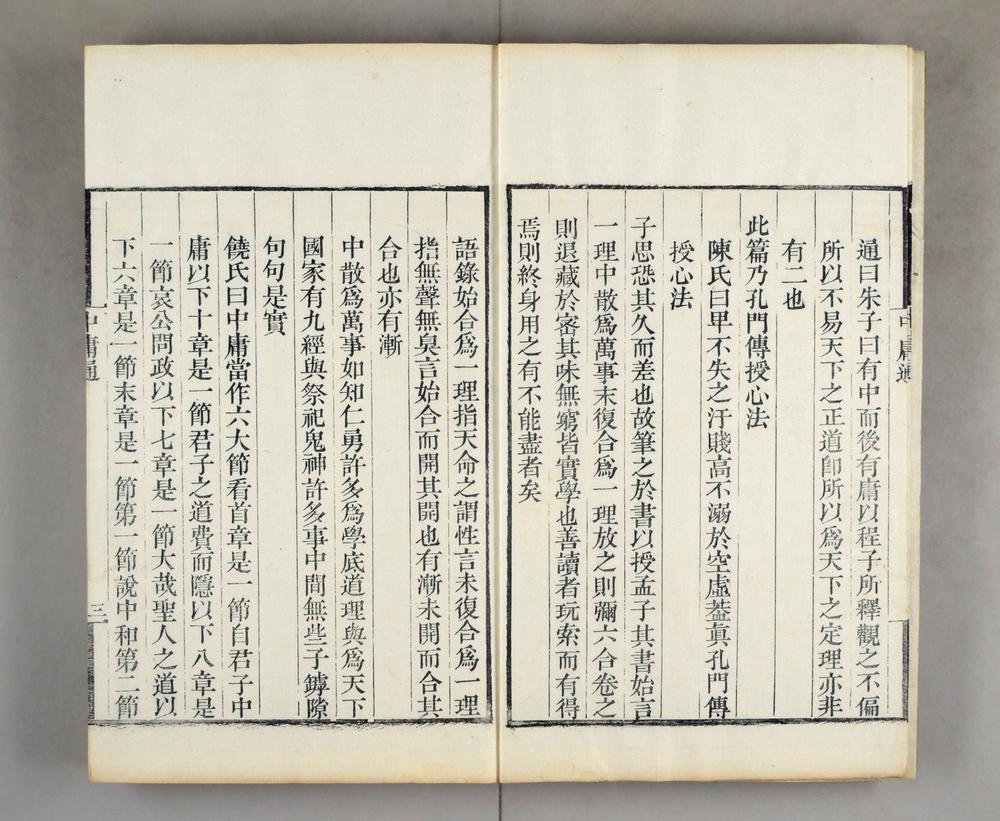 通曰朱子曰有中而後有庸以程子所釋觀之不偏
所以不易天下之正道卽所以爲天下之定理亦非
有二也
此篇乃孔門傳授心法
陳氏曰卑不失之汙賤高不溺於空虛葢眞孔門傳
授心法
子思恐其久而差也故筆之於書以授孟子其書始言
一理中散爲萬事末復合爲一理放之則彌六合卷之
則退藏於密其味無窮皆實學也善讀者玩索而有得
焉則終身用之有不能盡者矣
中庸通
語錄始合爲一理指天命之謂性言末復合爲一理
指無聲無臭言始合而開其開也有漸末開而合其
合也亦有漸
中散爲萬事如知仁勇許多爲學底道理與爲天下
國家有九經與祭祀鬼神許多事中間無些子罅隙
句句是實
饒氏曰中庸當作六大節看首章是一節自君子中
庸以下十章是一節君子之道費而隱以下八章是
一節哀公問政以下七章是一節大哉聖人之道以
下六章是一節末章是一節第一節說中和第二節
中庸通
三